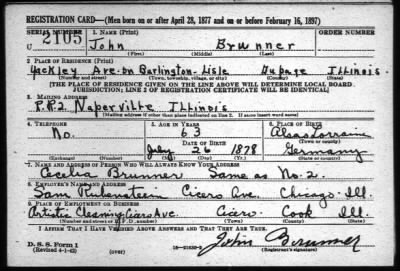 REGISTRATION CARD—(Men born on or after April 28, 1877 and on or before February 16, 1897)
SERIAL NUMBER 1. NAME (Print) ORDER NUMBER
U 2105 John Brunner
(First) (Middle) (Last)
2. PLACE OF RESIDENCE (Print)
Yackley Ave-on Burlington-Lisle Dupage Illinois
(Number and street) (Town, township, village, or city) (County) (State)
[THE PLACE OF RESIDENCE GIVEN ON THE LINE ABOVE WILL DETERMINE LOCAL BOARD
JURISDICTION; LINE 2 OF REGISTRATION CERTIFICATE WILL BE IDENTICAL]
3. MAILING ADDRESS
R.R.2. Naperville Illinois
(Mailing address if other than place indicated on line 2. If same insert word same)
4. TELEPHONE 5. AGE IN YEARS 6. PLACE OF BIRTH
No. 63 Alsas Lorraine
DATE OF BIRTH (Town or county)
July 26 1878 Germany
(Exchange) (Number) (Mo.) (Day) (Yr.) (State or country)
7. NAME AND ADDRESS OF PERSON WHO WILL ALWAYS KNOW YOUR ADDRESS
Cecelia Brunner Same as No. 2.
8. EMPLOYER'S NAME AND ADDRESS
Sam Cicero Ave. Chicago Ill.
9. PLACE OF EMPLOYMENT OR BUSINESS
Artistic Cleaning Cicero Ave. Cicero Cook Ill.
(Number and street or R. F. D. number) (Town) (County) (State)
I AFFIRM THAT I HAVE VERIFIED ABOVE ANSWERS AND THAT THEY ARE TRUE.
D. S. S. Form 1
(Revised 4-1-42) (over) John Brunner